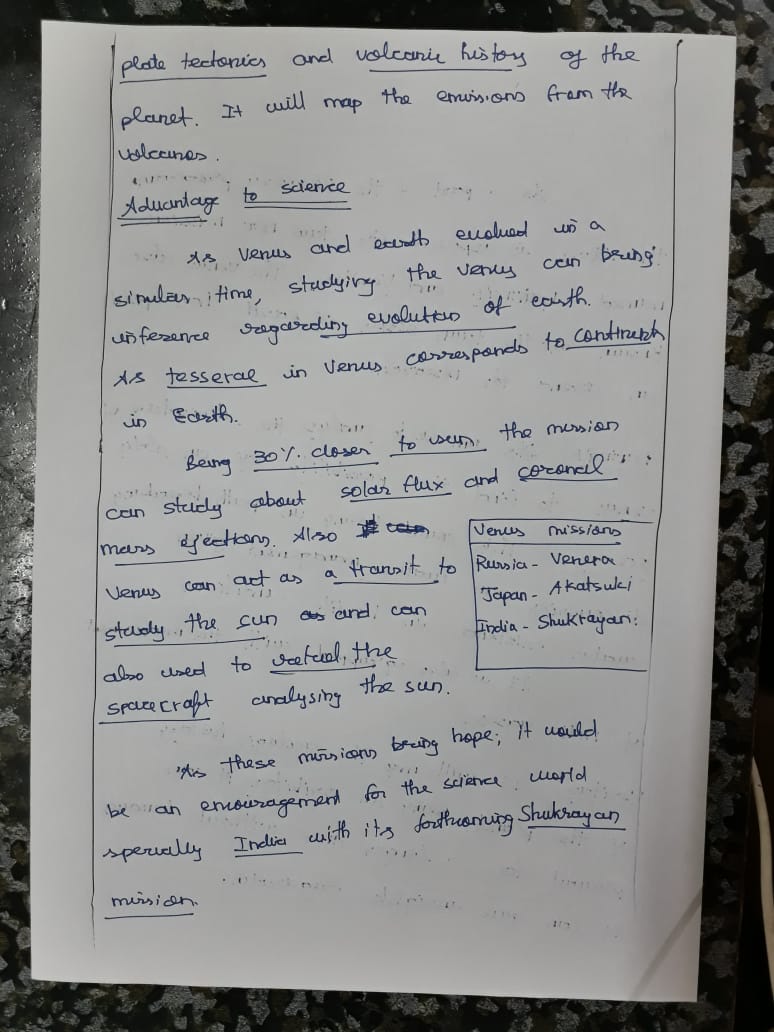 plate tectonics and volcanic history of the
planet. It will map the emissions from the
volcanes.
Advantage to science
As Venus and earth evolved in a
similar time, studying the Venus can bring
inference regarding evolution of earth.
As tesserae in Venus corresponds to continents
in Earth.
Being 30% closer to sun, the mission
can study about solar flux and coronal
mass ejections. Also
Venus can act as a transit to
study the sun and can
also used to refuel the
spacecraft analysing the sun.
Venus missions
Russia - Venera
Japan - Akatsuki
India - Shukrayan.
As these missions bring hope, it would
be an encouragement for the science world
specially India with its forthcoming Shukrayan
mission.